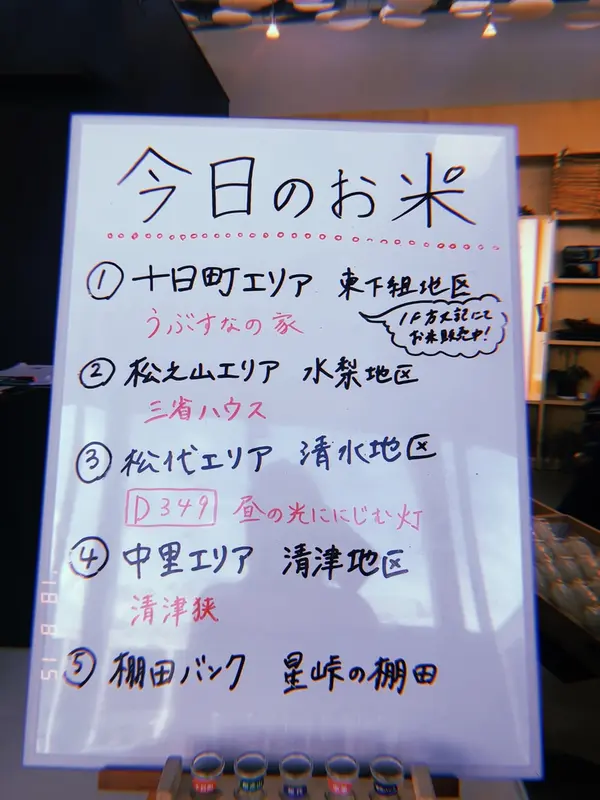 今日のお米
① 十日町エリア 東下組地区
うぶすなの家
1F方丈記にて
お米販売中!
② 松之山エリア 水梨地区
三省ハウス
③ 松代エリア 清水地区
D349 昼の光ににじむ灯
④ 中里エリア 清津地区
清津狭
⑤ 棚田バンク 星峠の棚田
'18 8 15